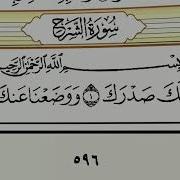 سُورَةُ الشَّرْحِ
اللَّهِ الرَّحْمَٰنِ الرَّحِيمِ
صَدْرَكَ ١ وَوَضَعْنَا عَنكَ
٥٩٦